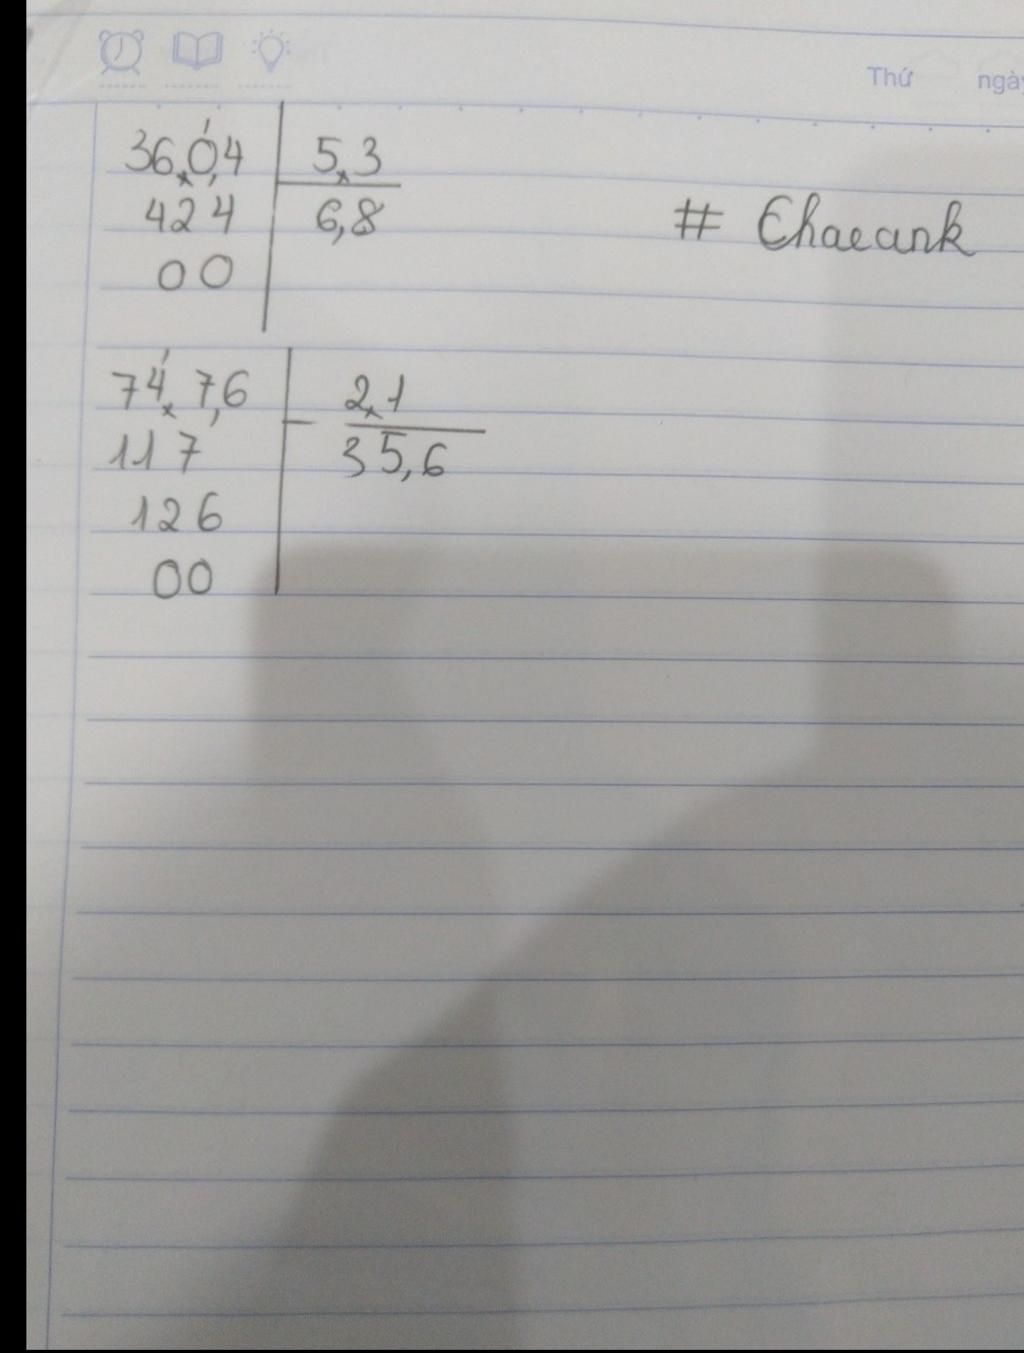 Thứ ngày
36,0,4 5,3
424 6,8
00
# Chaeank
74,7,6 2,1
117 35,6
126
00